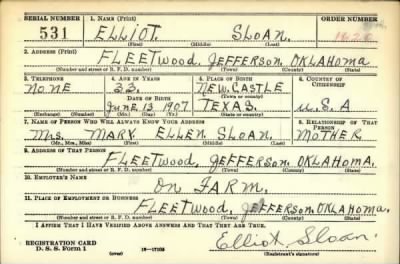 SERIAL NUMBER 1. NAME (Print)
531 ELLIOT. SLOAN.
(First) (Middle) (Last)
2. ADDRESS (Print)
FLEETwood, JEFFERSON, OKLAHOMA
(Number and street or R. F. D. number) (Town) (County) (State)
3. TELEPHONE 4. AGE IN YEARS 5. PLACE OF BIRTH 6. COUNTRY OF CITIZENSHIP
NONE 33. NEW CASTLE
DATE OF BIRTH (Town or county)
JUNE, 13 1907. TEXAS. U.S.A
(Exchange) (Number) (Mo.) (Day) (Yr.) (State or country)
7. NAME OF PERSON WHO WILL ALWAYS KNOW YOUR ADDRESS 8. RELATIONSHIP OF THAT PERSON
Mrs. MARY ELLEN SLOAN. MOTHER
(Mr., Mrs., Miss) (First) (Middle) (Last)
9. ADDRESS OF THAT PERSON
FLEETwood, JEFFERSON, OKLAHOMA.
(Number and street or R. F. D. number) (Town) (County) (State)
10. EMPLOYER'S NAME
ON FARM.
11. PLACE OF EMPLOYMENT OR BUSINESS
FLEETwood, JEFFERSON, OKLAHOMA.
(Number and street or R. F. D. number) (Town) (County) (State)
I AFFIRM THAT I HAVE VERIFIED ABOVE ANSWERS AND THAT THEY ARE TRUE.
REGISTRATION CARD
D. S. S. Form 1 (over) Elliot Sloan.
(Registrant's signature)